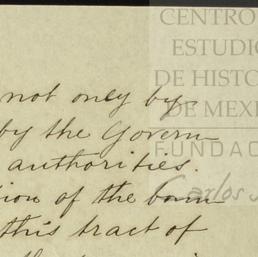 CENTRO
ESTUDIO
DE HISTO
DE MEXI
FUNDAC
Carlos S
not only by
by the Govern-
authorities.
tion of the boun-
this tract of